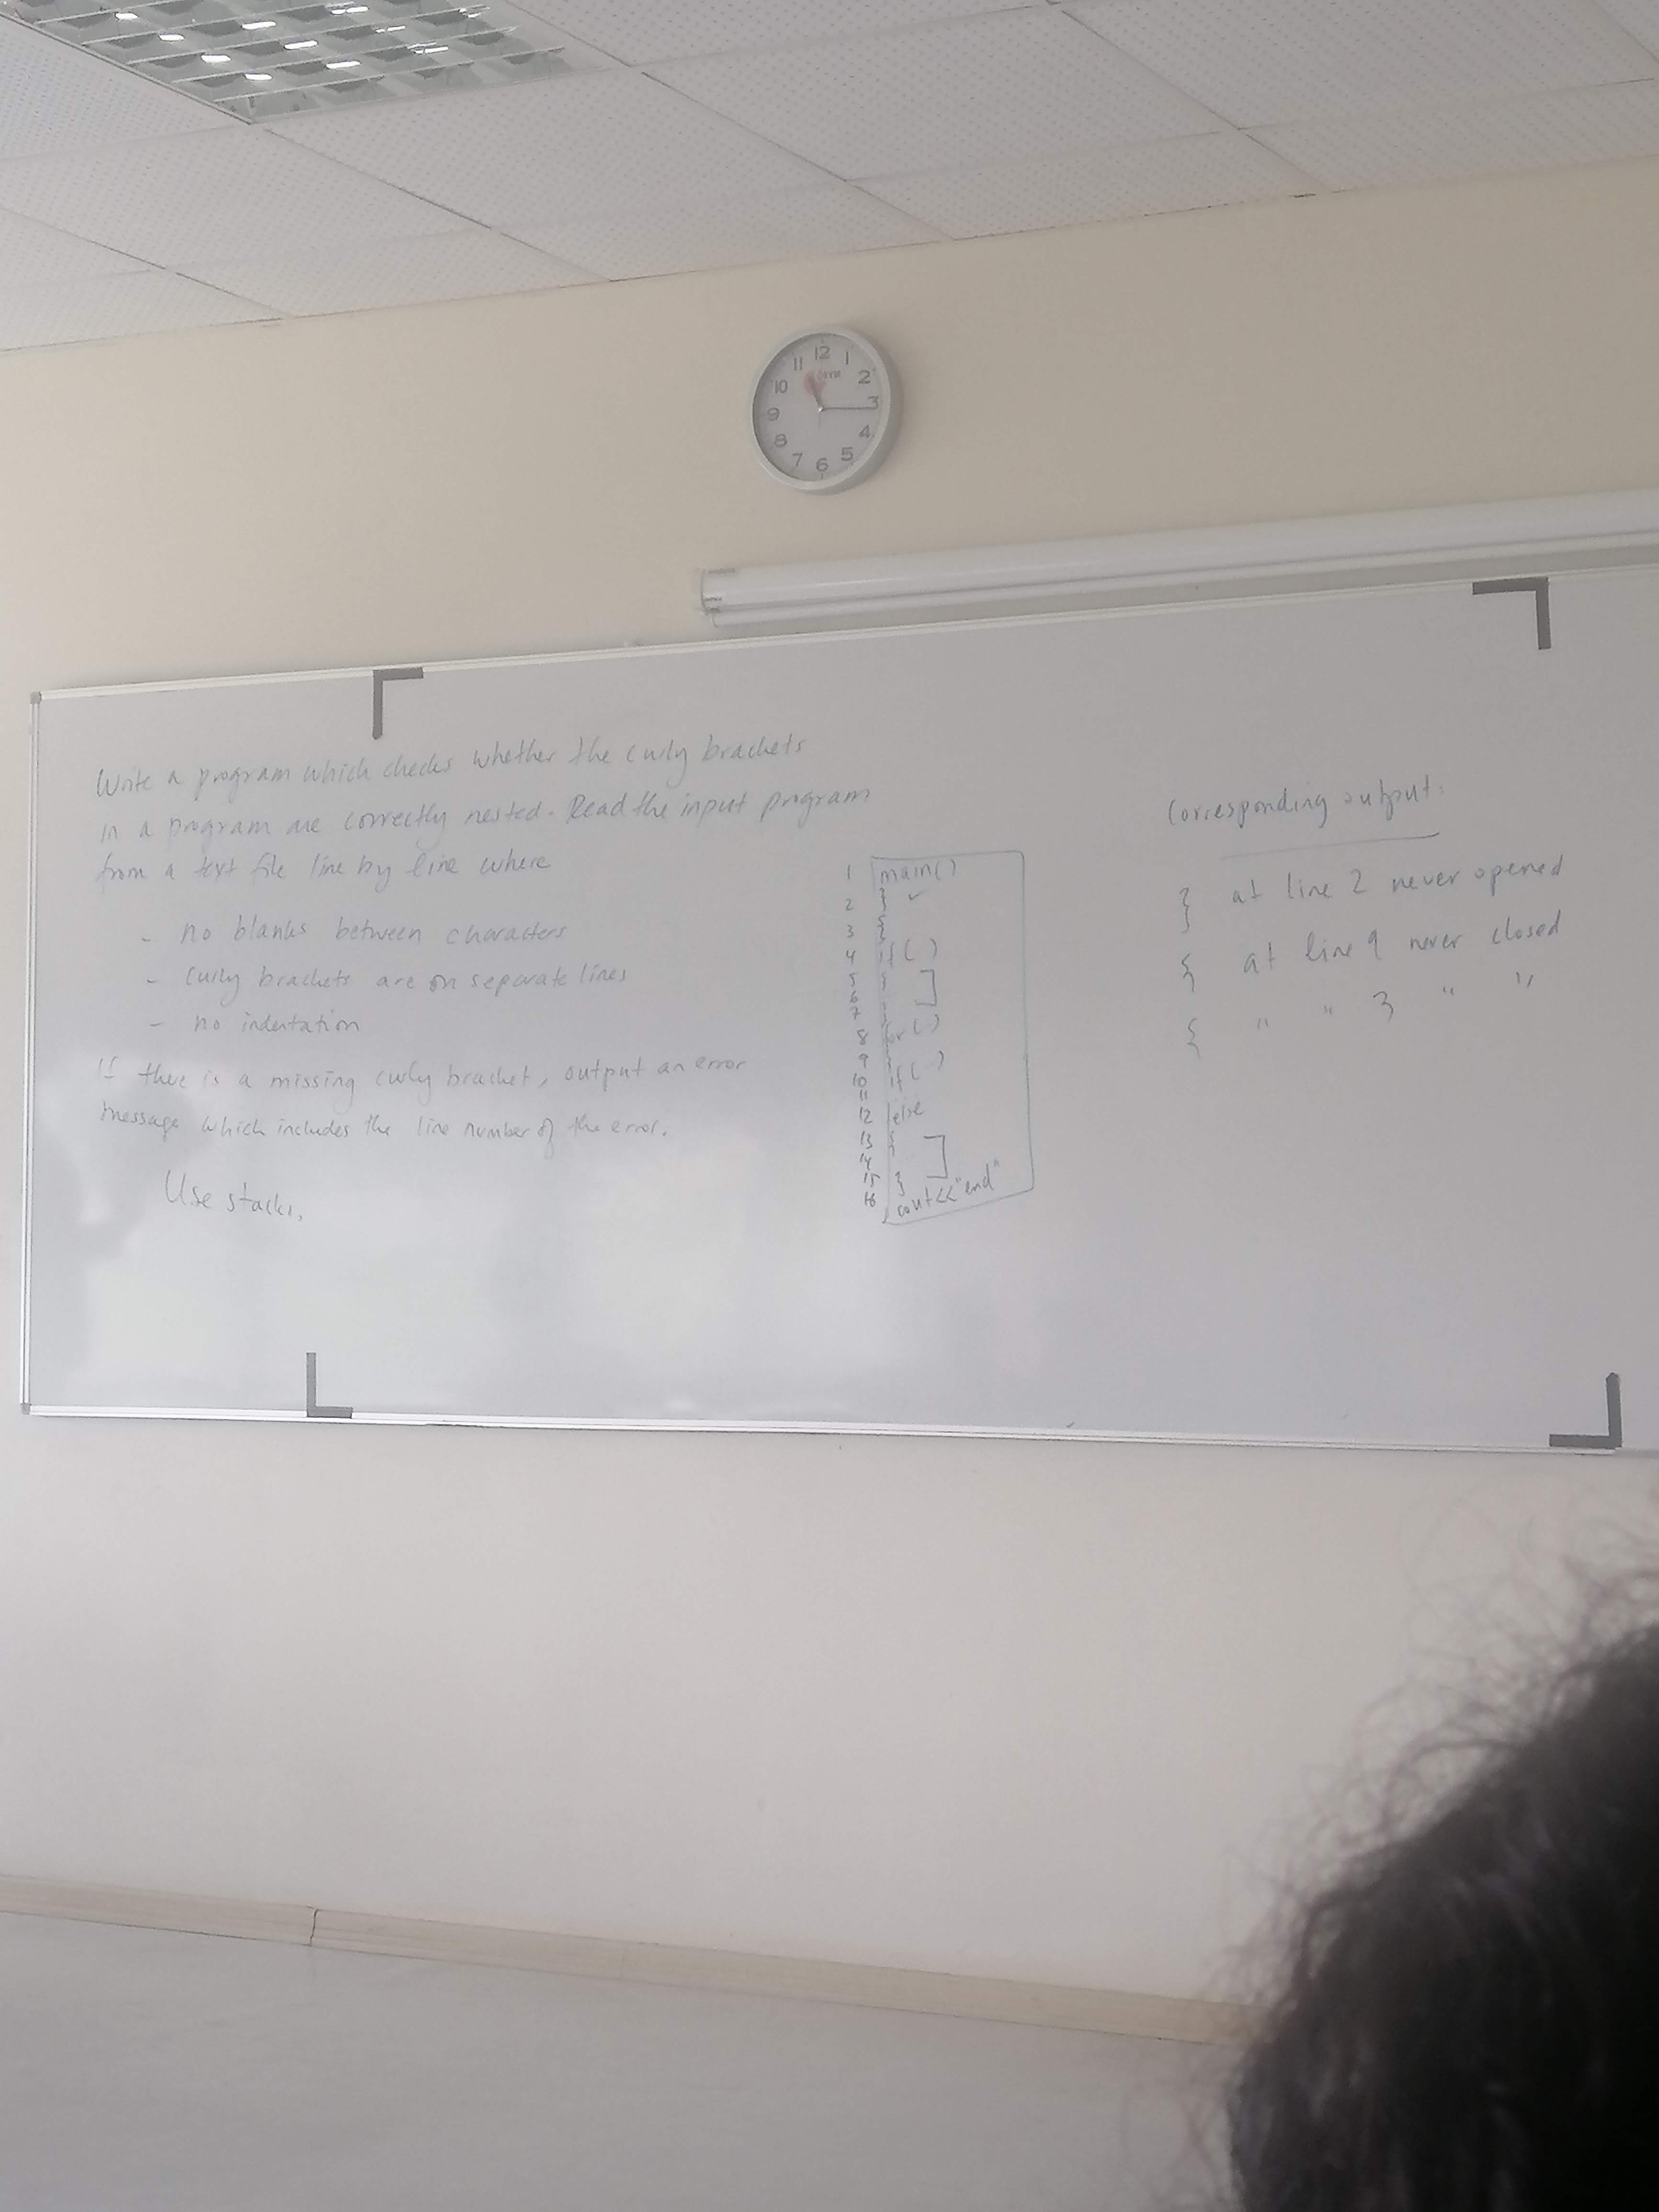 12
11 1
10 2
9 3
8 4
7 5
6
Write a program which checks whether the curly brackets
in a program are correctly nested. Read the input program
from a text file line by line where
- no blanks between characters
- curly brackets are on separate lines
- no indentation
If there is a missing curly bracket, output an error
message which includes the line number of the error.
Use stacks.
1 main()
2 } ✓
3 {
4 if( )
5 {
6
7
8 for( )
9 {
10 if( )
11
12 else
13 {
14
15 }
16 cout<<"end"
Corresponding output:
} at line 2 never opened
{ at line 9 never closed
{ " " 3 " "